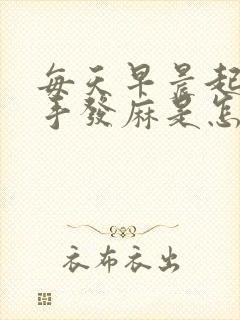 每天早晨起
手發麻是怎
衣布衣出